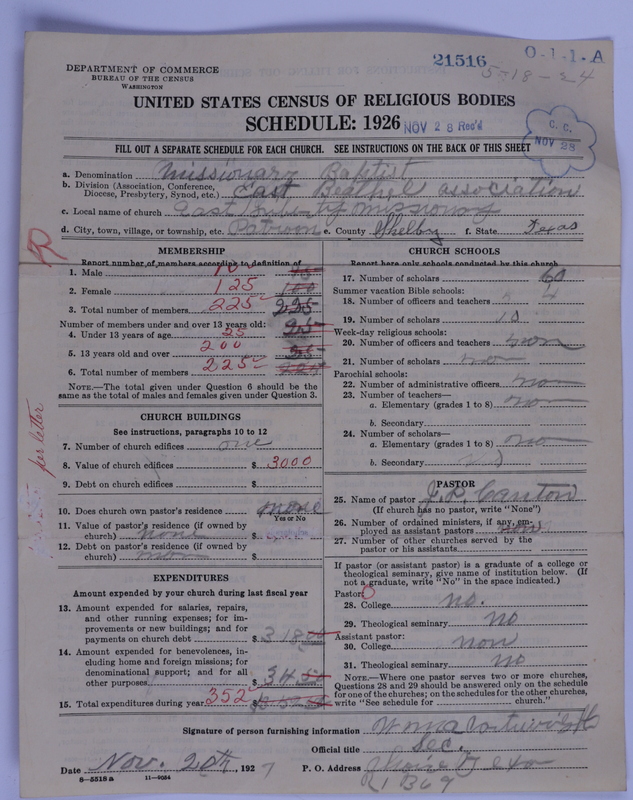 21516 O-1-1-A
5-18-24
DEPARTMENT OF COMMERCE
BUREAU OF THE CENSUS
WASHINGTON
UNITED STATES CENSUS OF RELIGIOUS BODIES
SCHEDULE: 1926
NOV 28 Rec'd
C. C.
NOV 28
FILL OUT A SEPARATE SCHEDULE FOR EACH CHURCH. SEE INSTRUCTIONS ON THE BACK OF THIS SHEET
a. Denomination Missionary Baptist
b. Division (Association, Conference, Diocese, Presbytery, Synod, etc.) East Beathel association
c. Local name of church East Missionary
d. City, town, village, or township, etc. Patroon e. County Shelby f. State Texas
R
per letter
MEMBERSHIP
Report number of members according to definition of
1. Male 100
2. Female 125 100
3. Total number of members 225 225
Number of members under and over 13 years old:
4. Under 13 years of age 25 25
5. 13 years old and over 200
6. Total number of members 225
NOTE.—The total given under Question 6 should be the
same as the total of males and females given under Question 3.
CHURCH BUILDINGS
See instructions, paragraphs 10 to 12
7. Number of church edifices one
8. Value of church edifices $ 3000
9. Debt on church edifices $
10. Does church own pastor's residence none
Yes or No
11. Value of pastor's residence (if owned by
church) none $
12. Debt on pastor's residence (if owned by
church) $
EXPENDITURES
Amount expended by your church during last fiscal year
13. Amount expended for salaries, repairs,
and other running expenses; for im-
provements or new buildings; and for
payments on church debt $ 318
14. Amount expended for benevolences, in-
cluding home and foreign missions; for
denominational support; and for all
other purposes $ 34 50
15. Total expenditures during year 352 $
CHURCH SCHOOLS
Report here only schools conducted by this church
17. Number of scholars 60
Summer vacation Bible schools:
18. Number of officers and teachers 4
19. Number of scholars
Week-day religious schools:
20. Number of officers and teachers non
21. Number of scholars non
Parochial schools:
22. Number of administrative officers non
23. Number of teachers—
a. Elementary (grades 1 to 8) non
b. Secondary
24. Number of scholars—
a. Elementary (grades 1 to 8) non
b. Secondary
PASTOR
25. Name of pastor J. P. Canton
(If church has no pastor, write "None")
26. Number of ordained ministers, if any, em-
ployed as assistant pastors
27. Number of other churches served by the
pastor or his assistants
If pastor (or assistant pastor) is a graduate of a college or
theological seminary, give name of institution below. (If
not a graduate, write "No" in the space indicated.)
Pastor: 0
28. College no.
29. Theological seminary no
Assistant pastor:
30. College non
31. Theological seminary no
NOTE.—Where one pastor serves two or more churches,
Questions 28 and 29 should be answered only on the schedule
for one of the churches; on the schedules for the other churches,
write "See schedule for church."
Signature of person furnishing information
Official title Sec.
Date Nov. 20th, 1927 P. O. Address
8—5518 a 11—9084